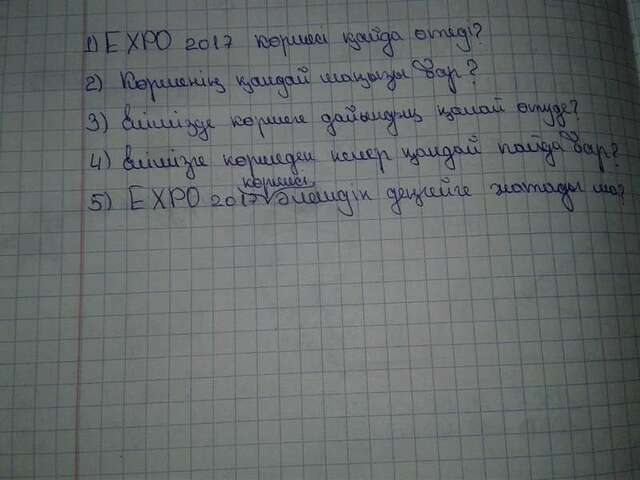 1) EXPO 2017 көрмесі қайда өтеді?
2) Көрменің қандай маңызы бар?
3) Елімізде көрмеге дайындық қалай өтуде?
4) Елімізге көрмеден келер қандай пайда бар?
көрмесі
5) EXPO 2017 әлемдік деңгейге жатады ма?